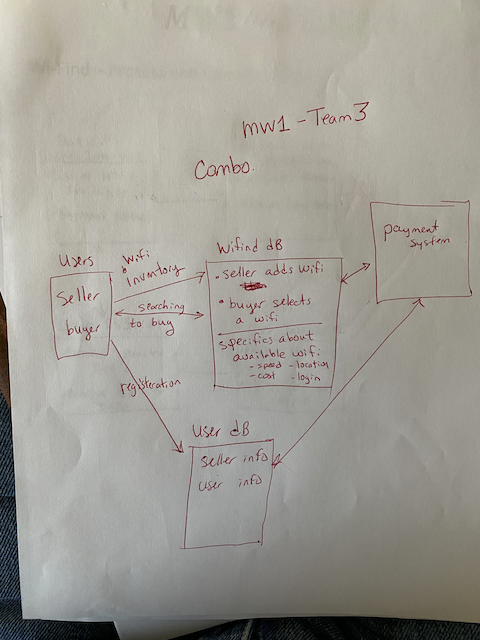 MW1 - Team 3
Combo.
Users
Seller
buyer
Wifi
Inventory
searching
to buy
registeration
Wifind dB
• seller adds wifi
• buyer selects
a wifi
specifics about
available wifi
- speed - location
- cost - login
payment
system
User dB
seller info
user info